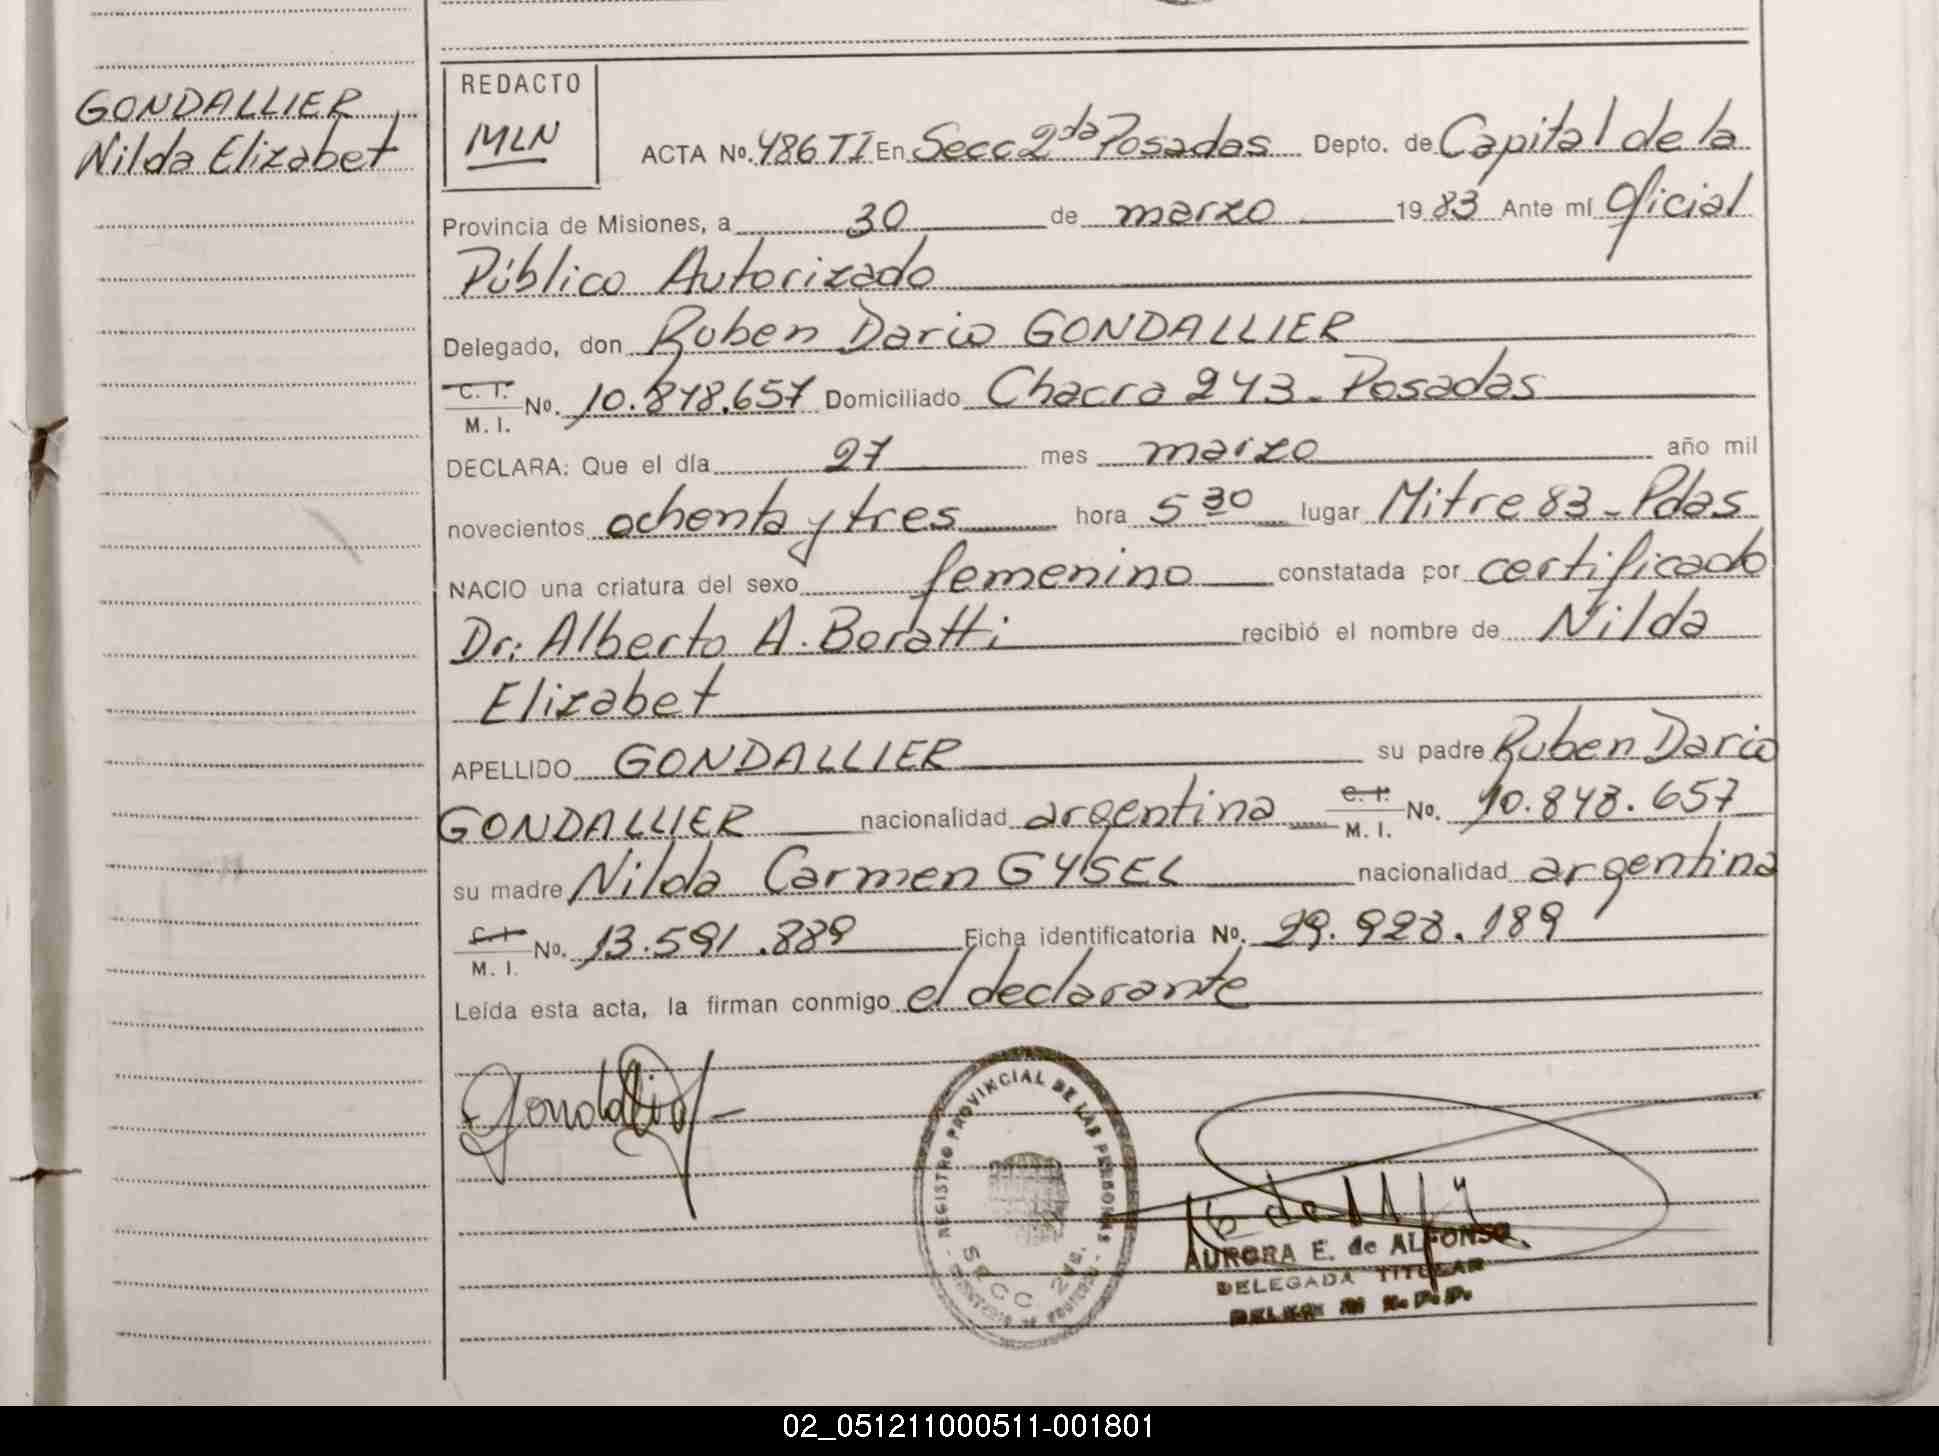 GONDALLIER
Nilda Elizabet
REDACTO
MLN
ACTA No. 486 TI En Secc 2da Posadas Depto. de Capital de la
Provincia de Misiones, a 30 de marzo 1983 Ante mí Oficial
Público Autorizado
Delegado, don Ruben Dario GONDALLIER
C. I. M. I. No. 10.848.657 Domiciliado Chacra 243 - Posadas
DECLARA: Que el día 27 mes marzo año mil
novecientos ochenta y tres hora 5 30 lugar Mitre 83 - Pdas
NACIO una criatura del sexo femenino constatada por certificado
Dr: Alberto A. Boratti recibió el nombre de Nilda
Elizabet
APELLIDO GONDALLIER su padre Ruben Dario
GONDALLIER nacionalidad argentina C. I. M. I. No. 10.848.657
su madre Nilda Carmen GYSEL nacionalidad argentina
C. I. M. I. No. 13.591.889 Ficha identificatoria No. 29.928.189
Leída esta acta, la firman conmigo el declarante
REGISTRO PROVINCIAL DE LAS PERSONAS
SECC 2da.
AURORA E. de ALFONSO
DELEGADA TITULAR
02_051211000511-001801